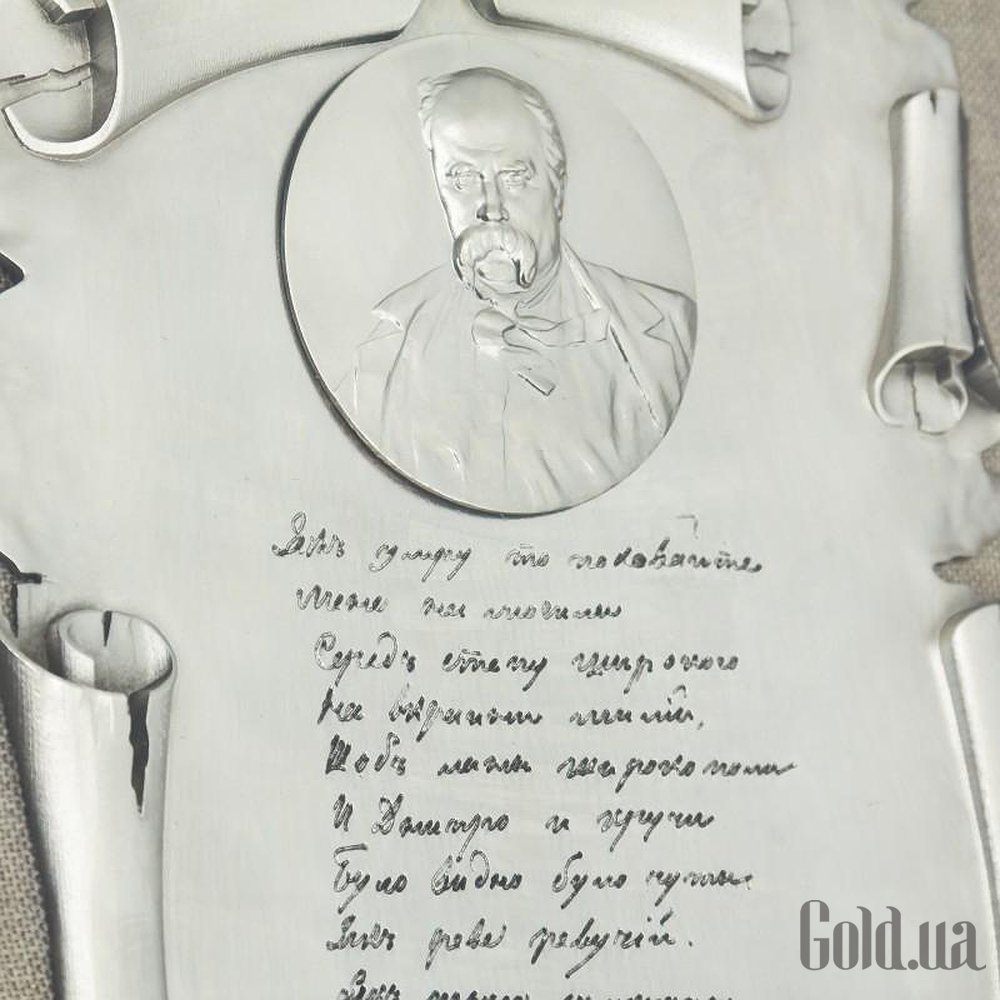 Якъ умру то поховайте
Мене на могили
Середъ степу широкого
На вкраини милій,
Щобъ ланы широкополи
И Днипро и кручи
Було видно було чути
Якъ реве ревучій.
Якъ
Gold.ua